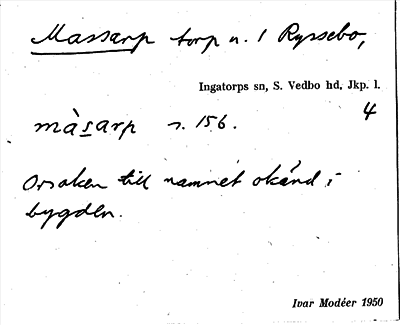 Massarp torp u. 1 Ryssebo,
Ingatorps sn, S. Vedbo hd, Jkp. l.
4
màsarp s. 156.
Orsaken till namnet okänd i
bygden.
Ivar Modéer 1950